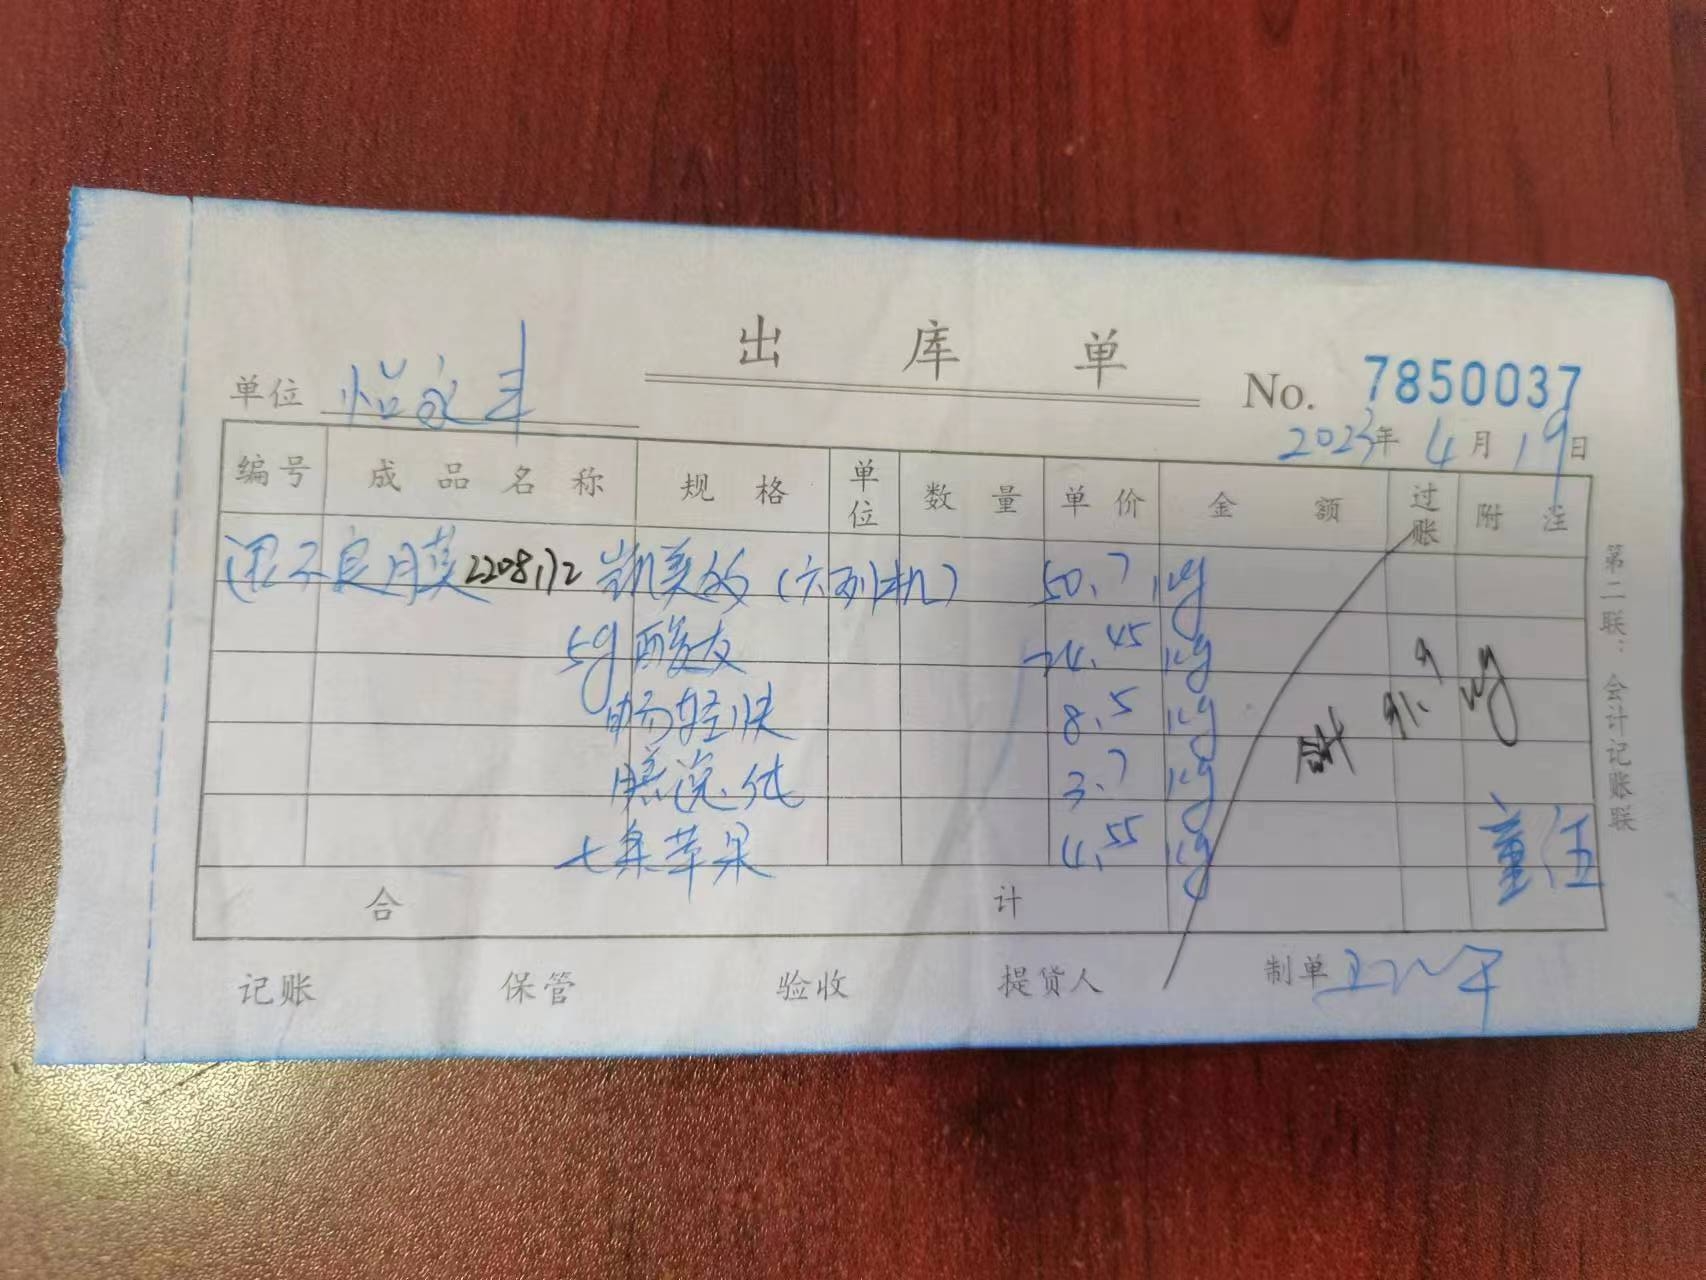 出库单
单位 怡永丰
No. 7850037
2023年4月19日
编号 成品名称 规格 单位 数量 单价 金额 过账 附注
退不良膜 2208172 凯美的(六列机) 50.7 kg
5g酸友 24.45 kg
畅轻快 8.5 kg
3.7 kg
七条苹果 4.55 kg
91.9 kg
董伍
合计
记账 保管 验收 提货人 制单
第二联:会计记账联